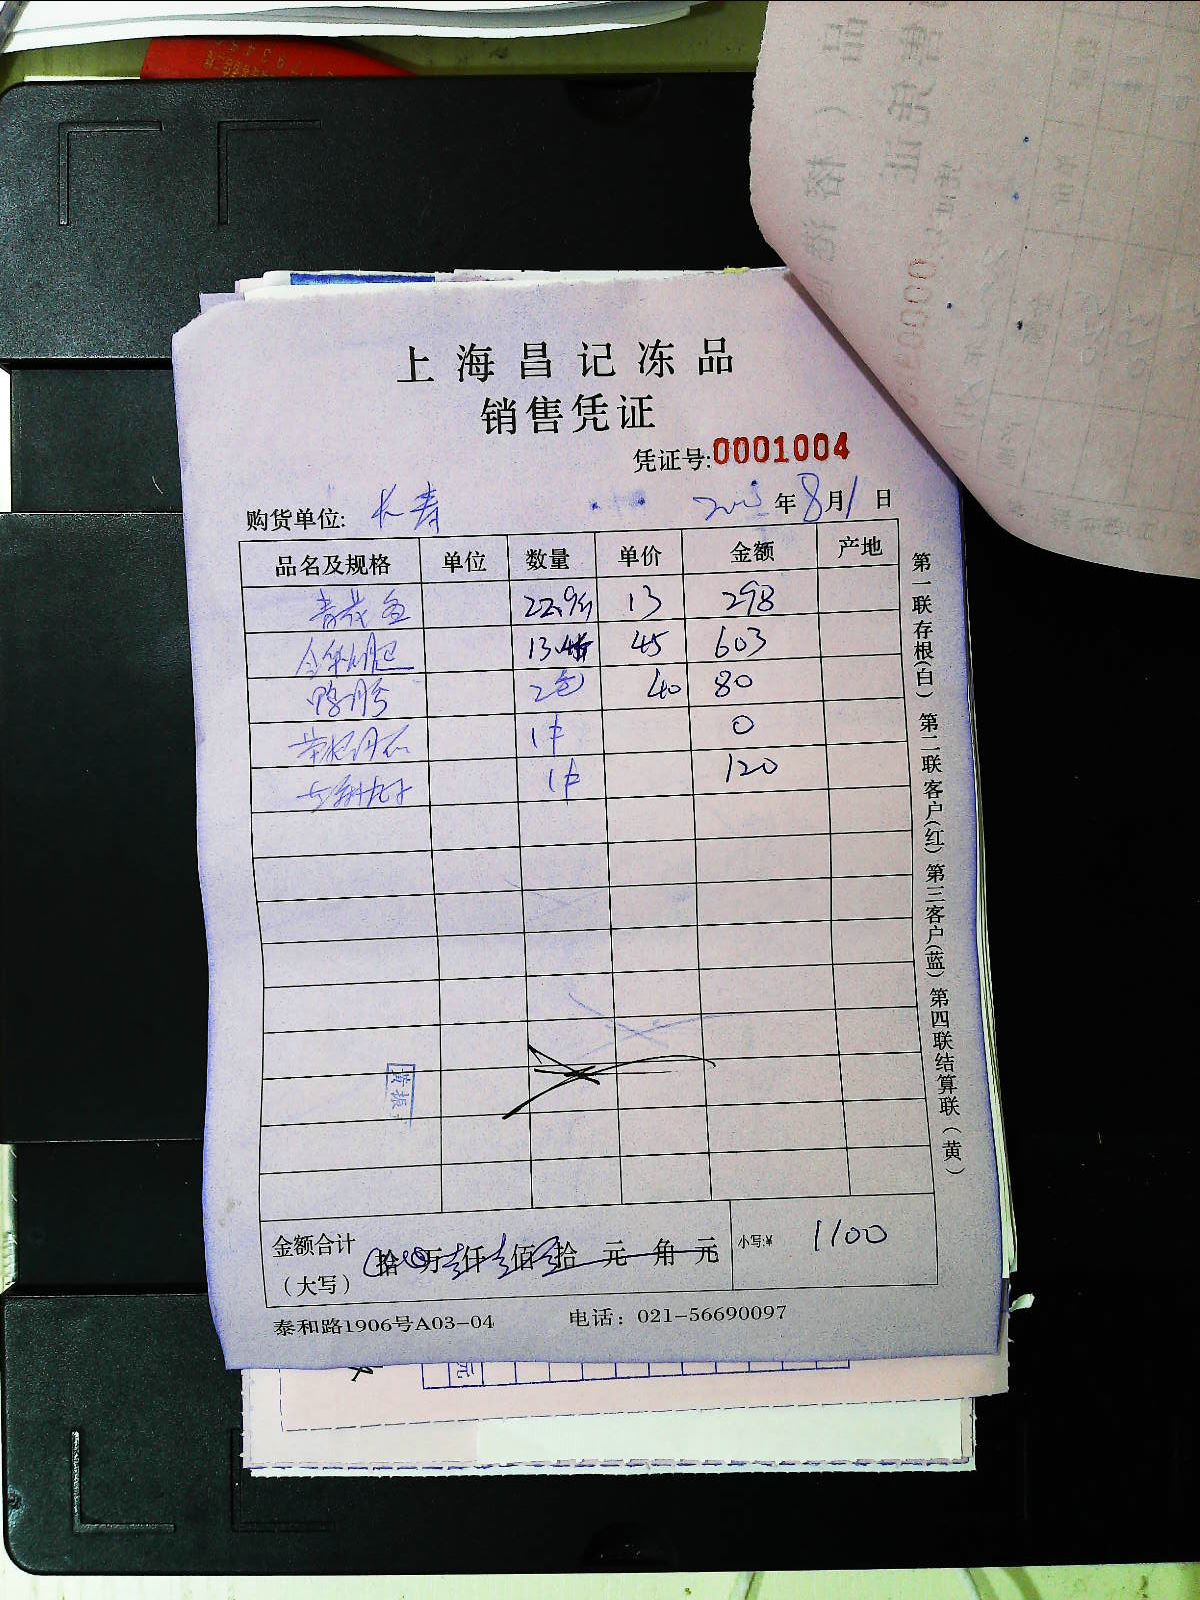 上海昌记冻品
销售凭证
凭证号:0001004
购货单位: 长寿 年8月1日
品名及规格 单位 数量 单价 金额 产地
青花鱼 22.9斤 13 298
13.4斤 45 603
鸭胗 2包 40 80
1件 0
1件 120
第一联存根(白) 第二联客户(红) 第三客户(蓝) 第四联结算联(黄)
黄振
金额合计 拾 万 仟 佰 拾 元 角 元 小写:¥ 1100
(大写)
泰和路1906号A03-04 电话: 021-56690097